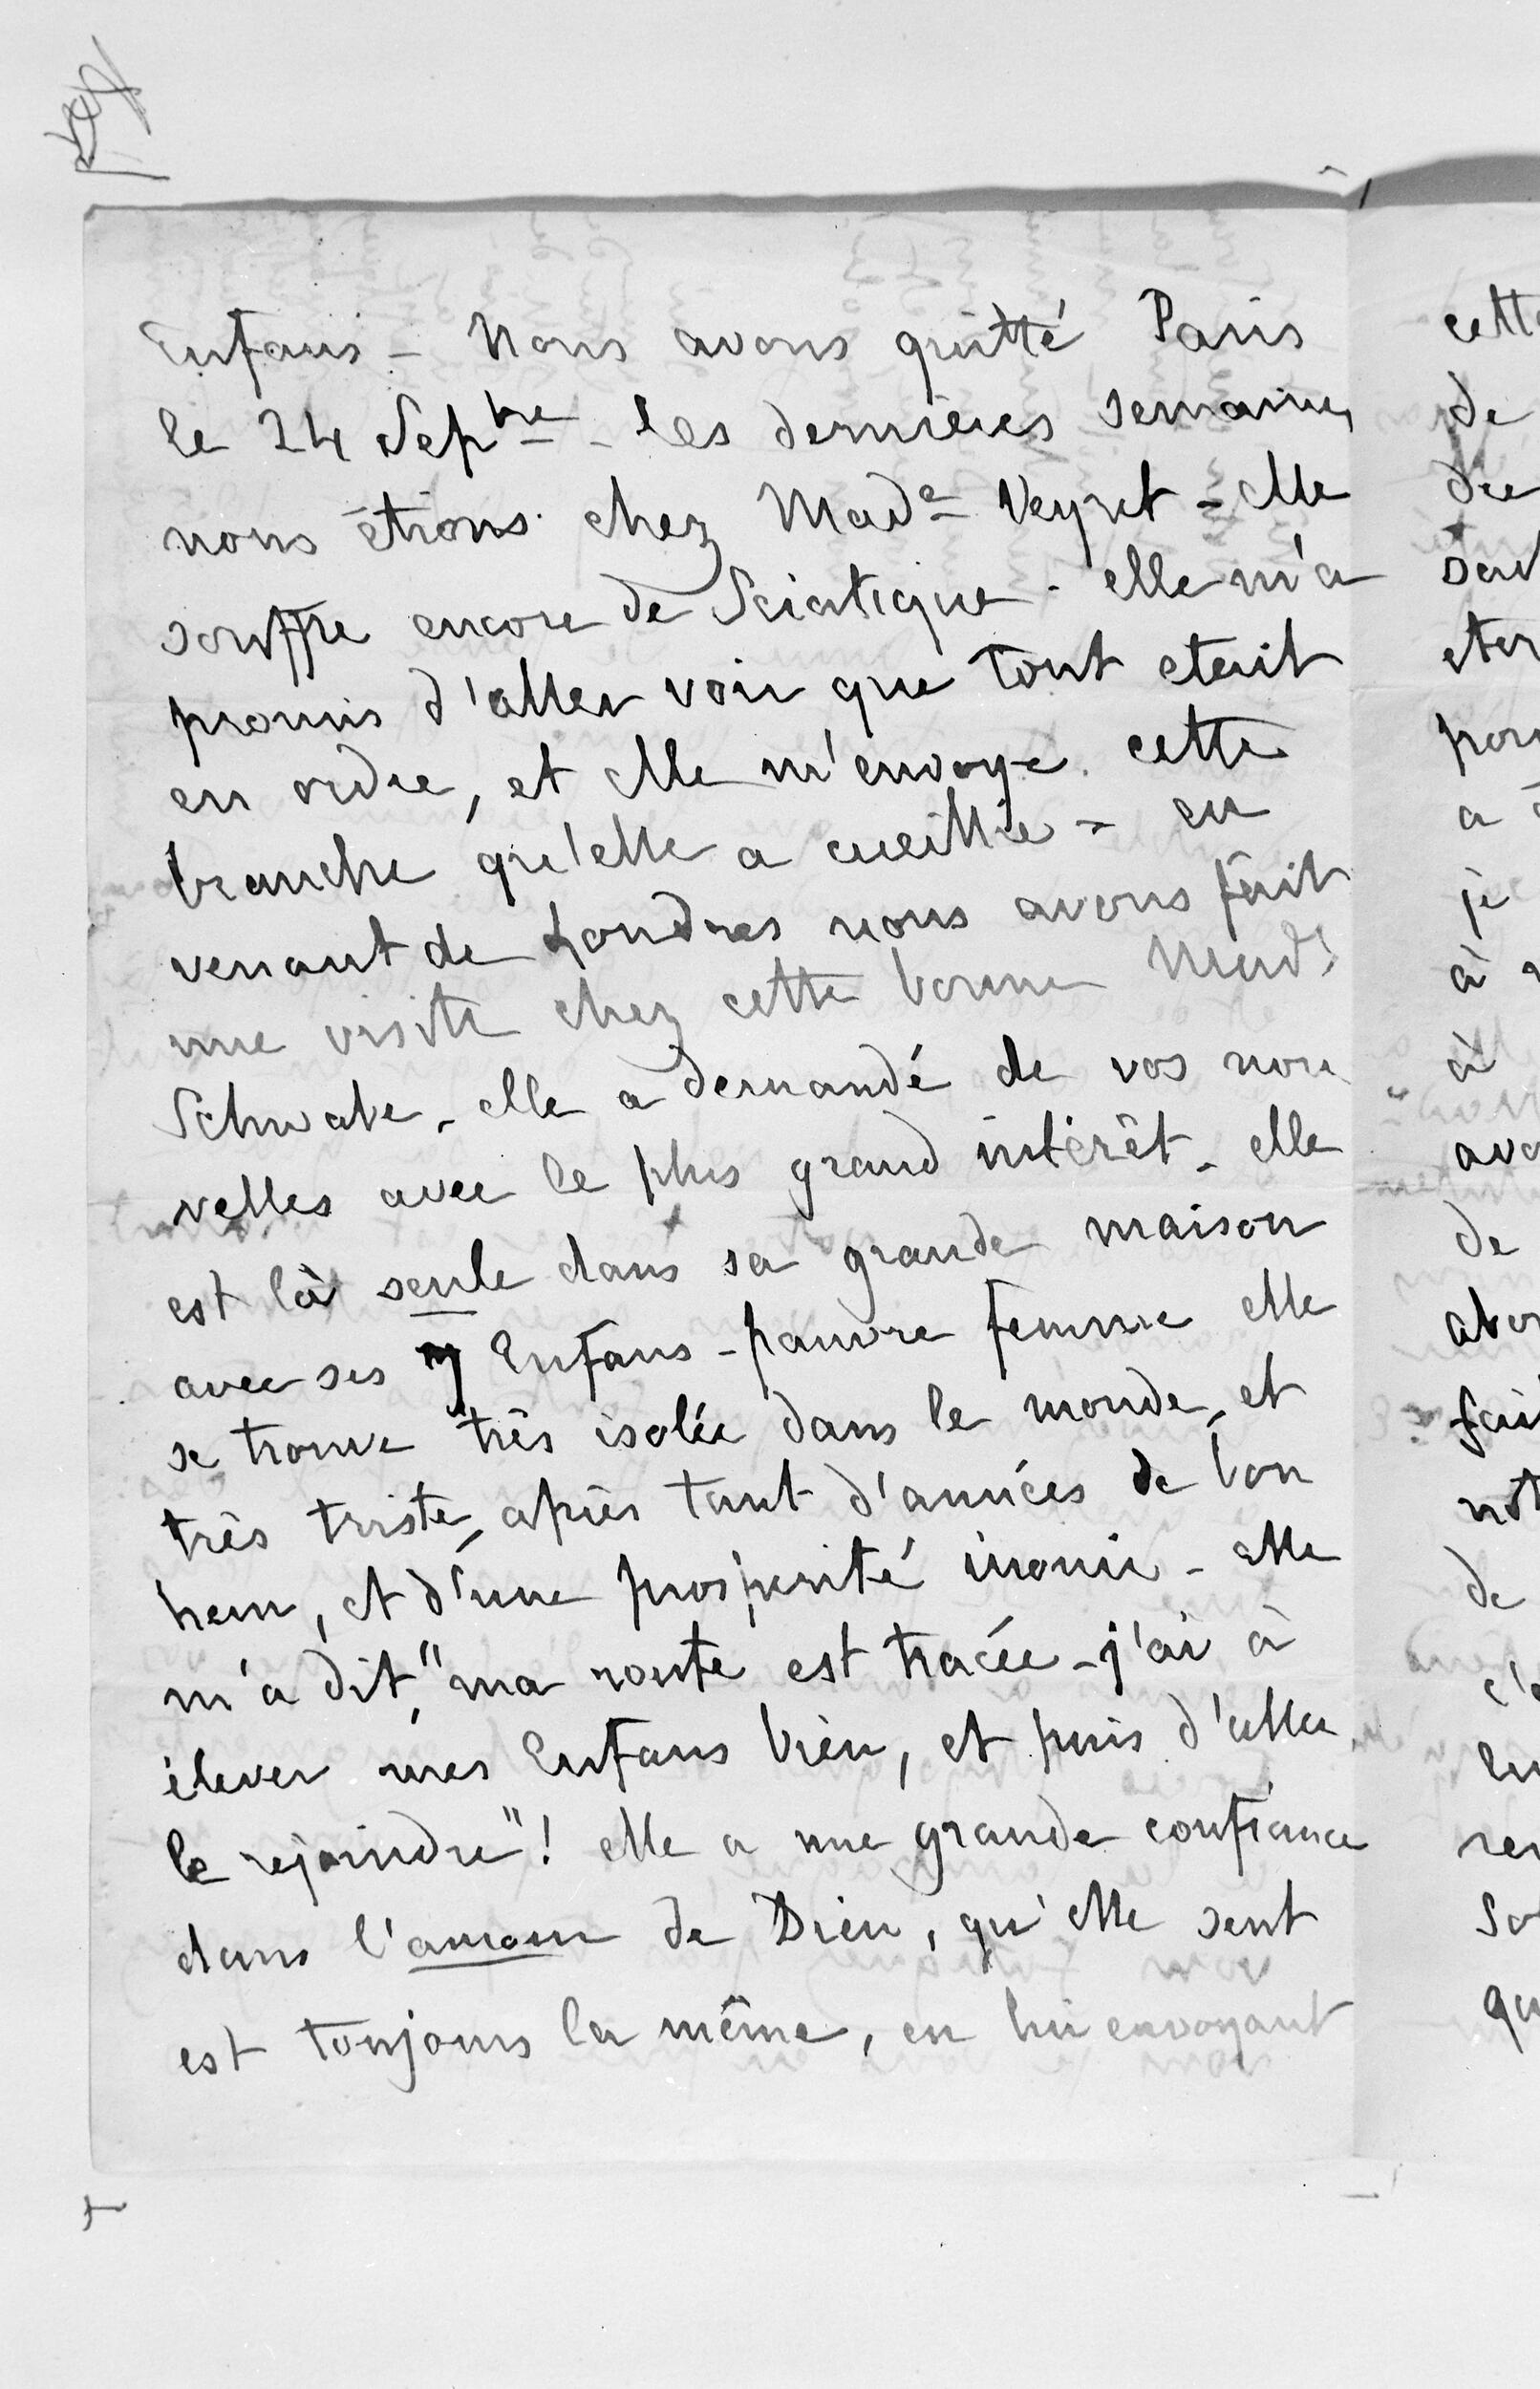 Enfans - Nous avons quitté Paris
le 24 Sepbre - les dernières semaines
nous étions chez Made Veyret - elle
souffre encore de Sciatique - elle m'a
promis d'aller voir que tout etait
en ordre, et elle m'envoye cette
branche qu'elle a cueillie - en
venant de Londres nous avons fait
une visite chez cette bonne Made
Schwabe - elle a demandé de vos nou
velles avec le plus grand intérêt - elle
est là seule dans sa grande maison
avec ses 7 Enfans - pauvre femme elle
se trouve très isolée dans le monde, et
très triste, après tant d'années de bon
heur, et d'une prosperité inouie - elle
m'a dit, "ma route est tracée - j'ai à
élever mes Enfans bien, et puis d'aller
le rejoindre"! elle a une grande confiance
dans l'amour de Dieu, qu'elle sent
est toujours la même, en lui envoyant